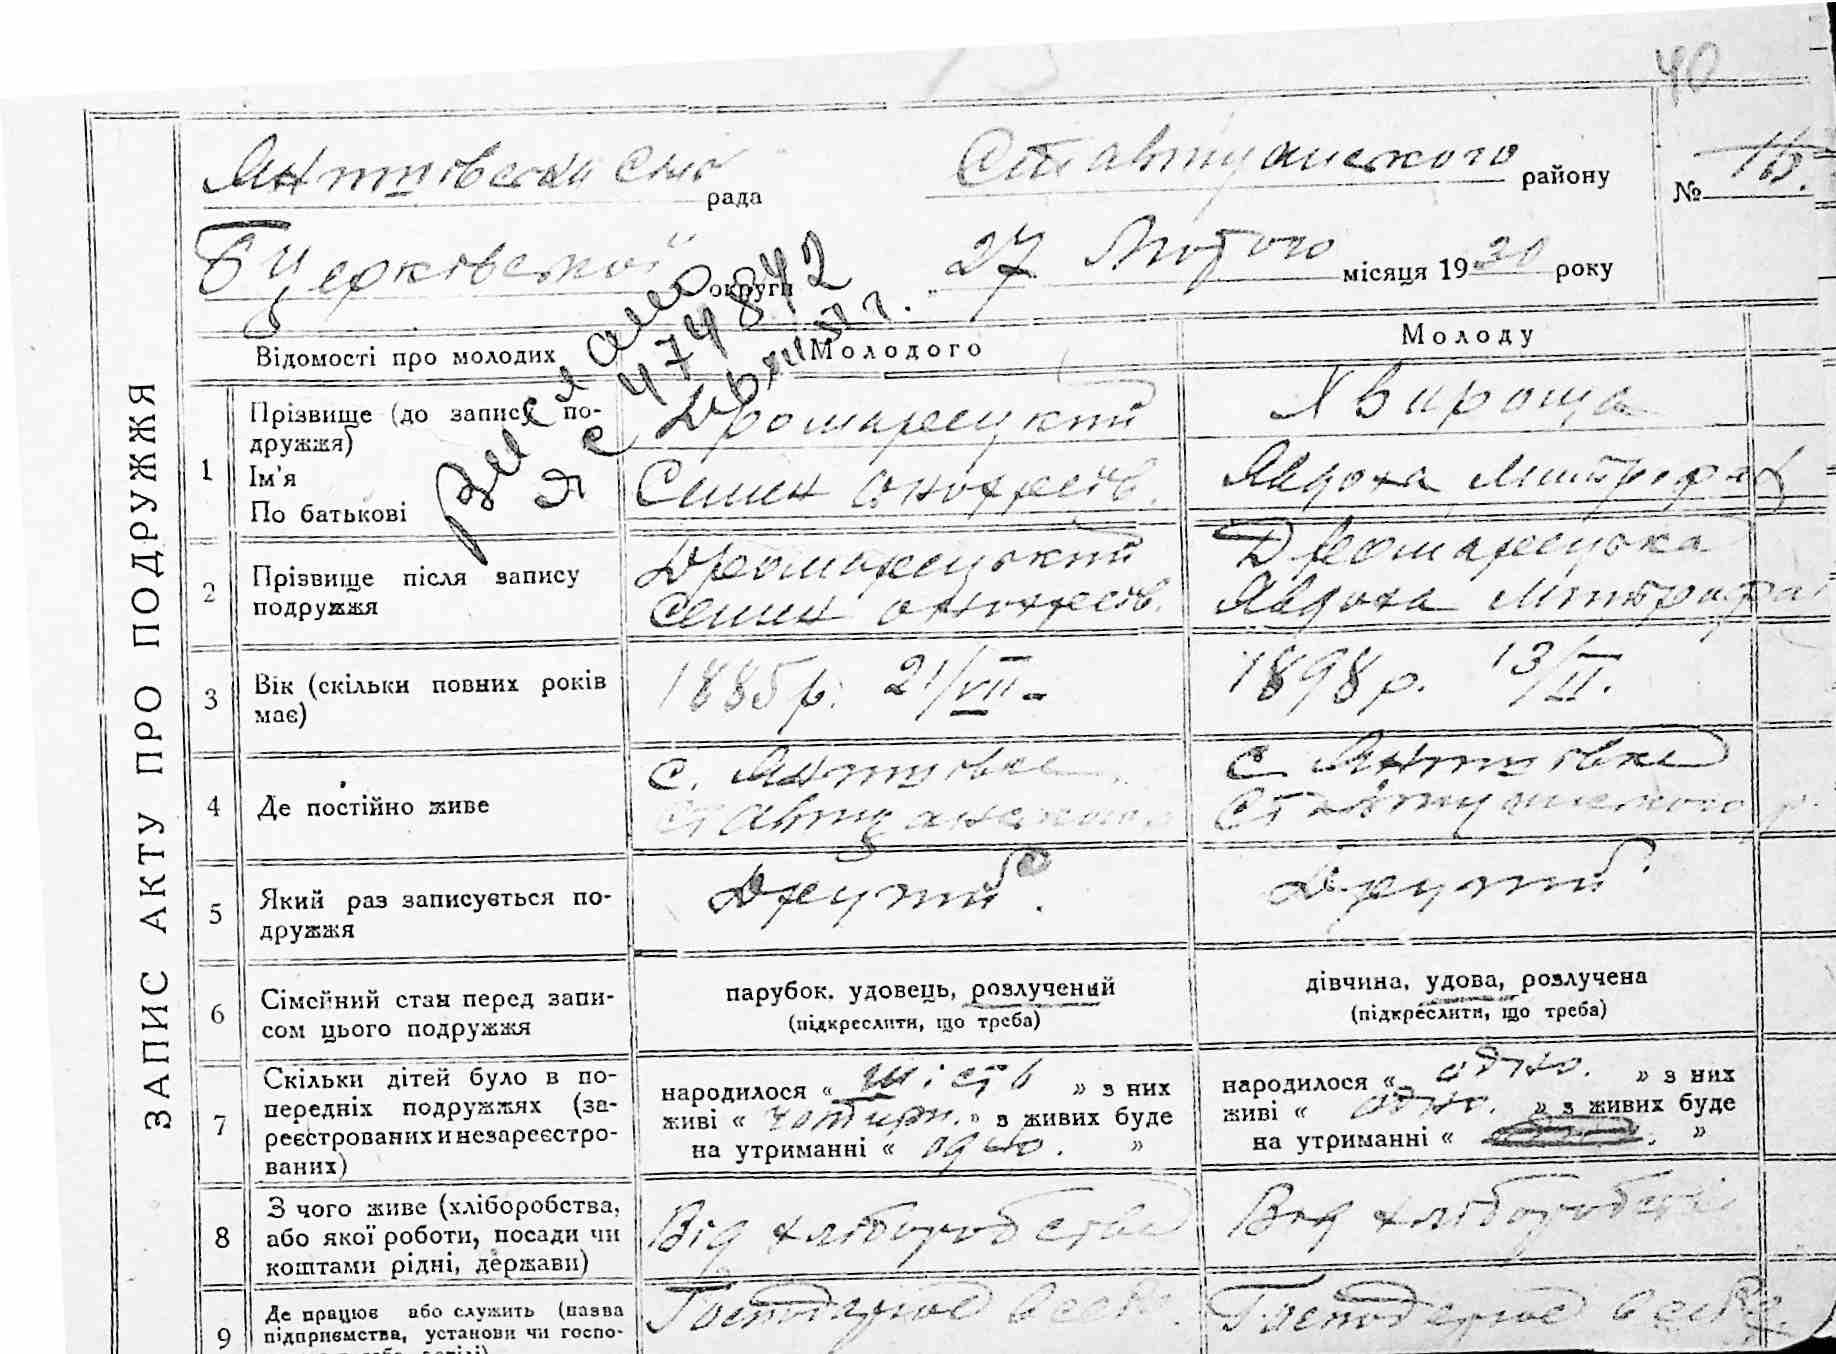 40
ЗАПИС АКТУ ПРО ПОДРУЖЖЯ
рада
Ставищанского району
№ 16.
Б Церківської округи
27 Лютого місяця 1930 року
Відомості про молодих
Молодого
Молоду
1
Прізвище (до запису по-
дружжя)
Ім'я
По батькові
Хвироща
Семен
Явдоха
2
Прізвище після запису
подружжя
Семен
Явдоха
3
Вік (скільки повних років
має)
1885 р. 21/VII-
1898 р. 13/II.
4
Де постійно живе
с. Янишівка
Ставищанского
с Янишівка
Ставищанского р.
5
Який раз записується по-
дружжя
Другий.
Другий
6
Сімейний стан перед запи-
сом цього подружжя
парубок, удовець, розлучений
(підкреслити, що треба)
дівчина, удова, розлучена
(підкреслити, що треба)
7
Скільки дітей було в по-
передніх подружжях (за-
реєстрованих и незареєстро-
ваних)
народилося « шість » з них
живі « чотири. » з живих буде
на утриманні « одно. »
народилося « одно. » з них
живі « одно. » з живих буде
на утриманні « »
8
З чого живе (хліборобства,
або якої роботи, посади чи
коштами рідні, держави)
Від хліборобства
Від хліборобства
9
Де працює або служить (назва
підприємства, установи чи госпо-